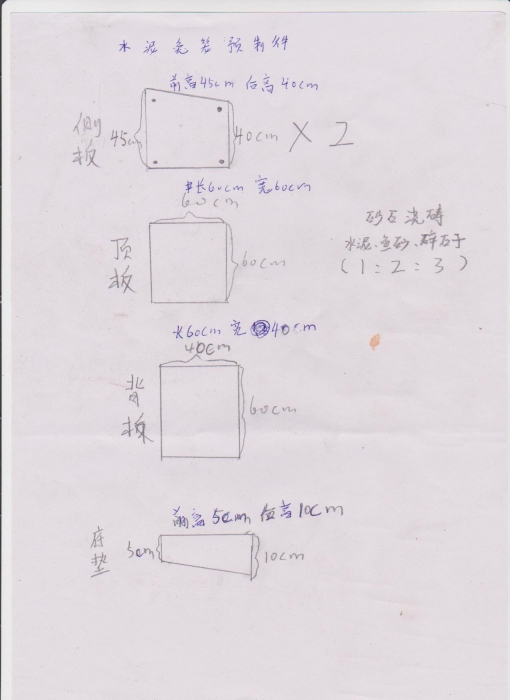 水泥兔笼预制件
前高45cm 后高40cm
侧板
45cm
40cm
× 2
长60cm 宽60cm
60cm
顶板
60cm
砂石浇砖
水泥、鱼砂、碎石子
(1:2:3)
长60cm 宽40cm
40cm
背板
60cm
前高5cm 后高10cm
底垫
5cm
10cm